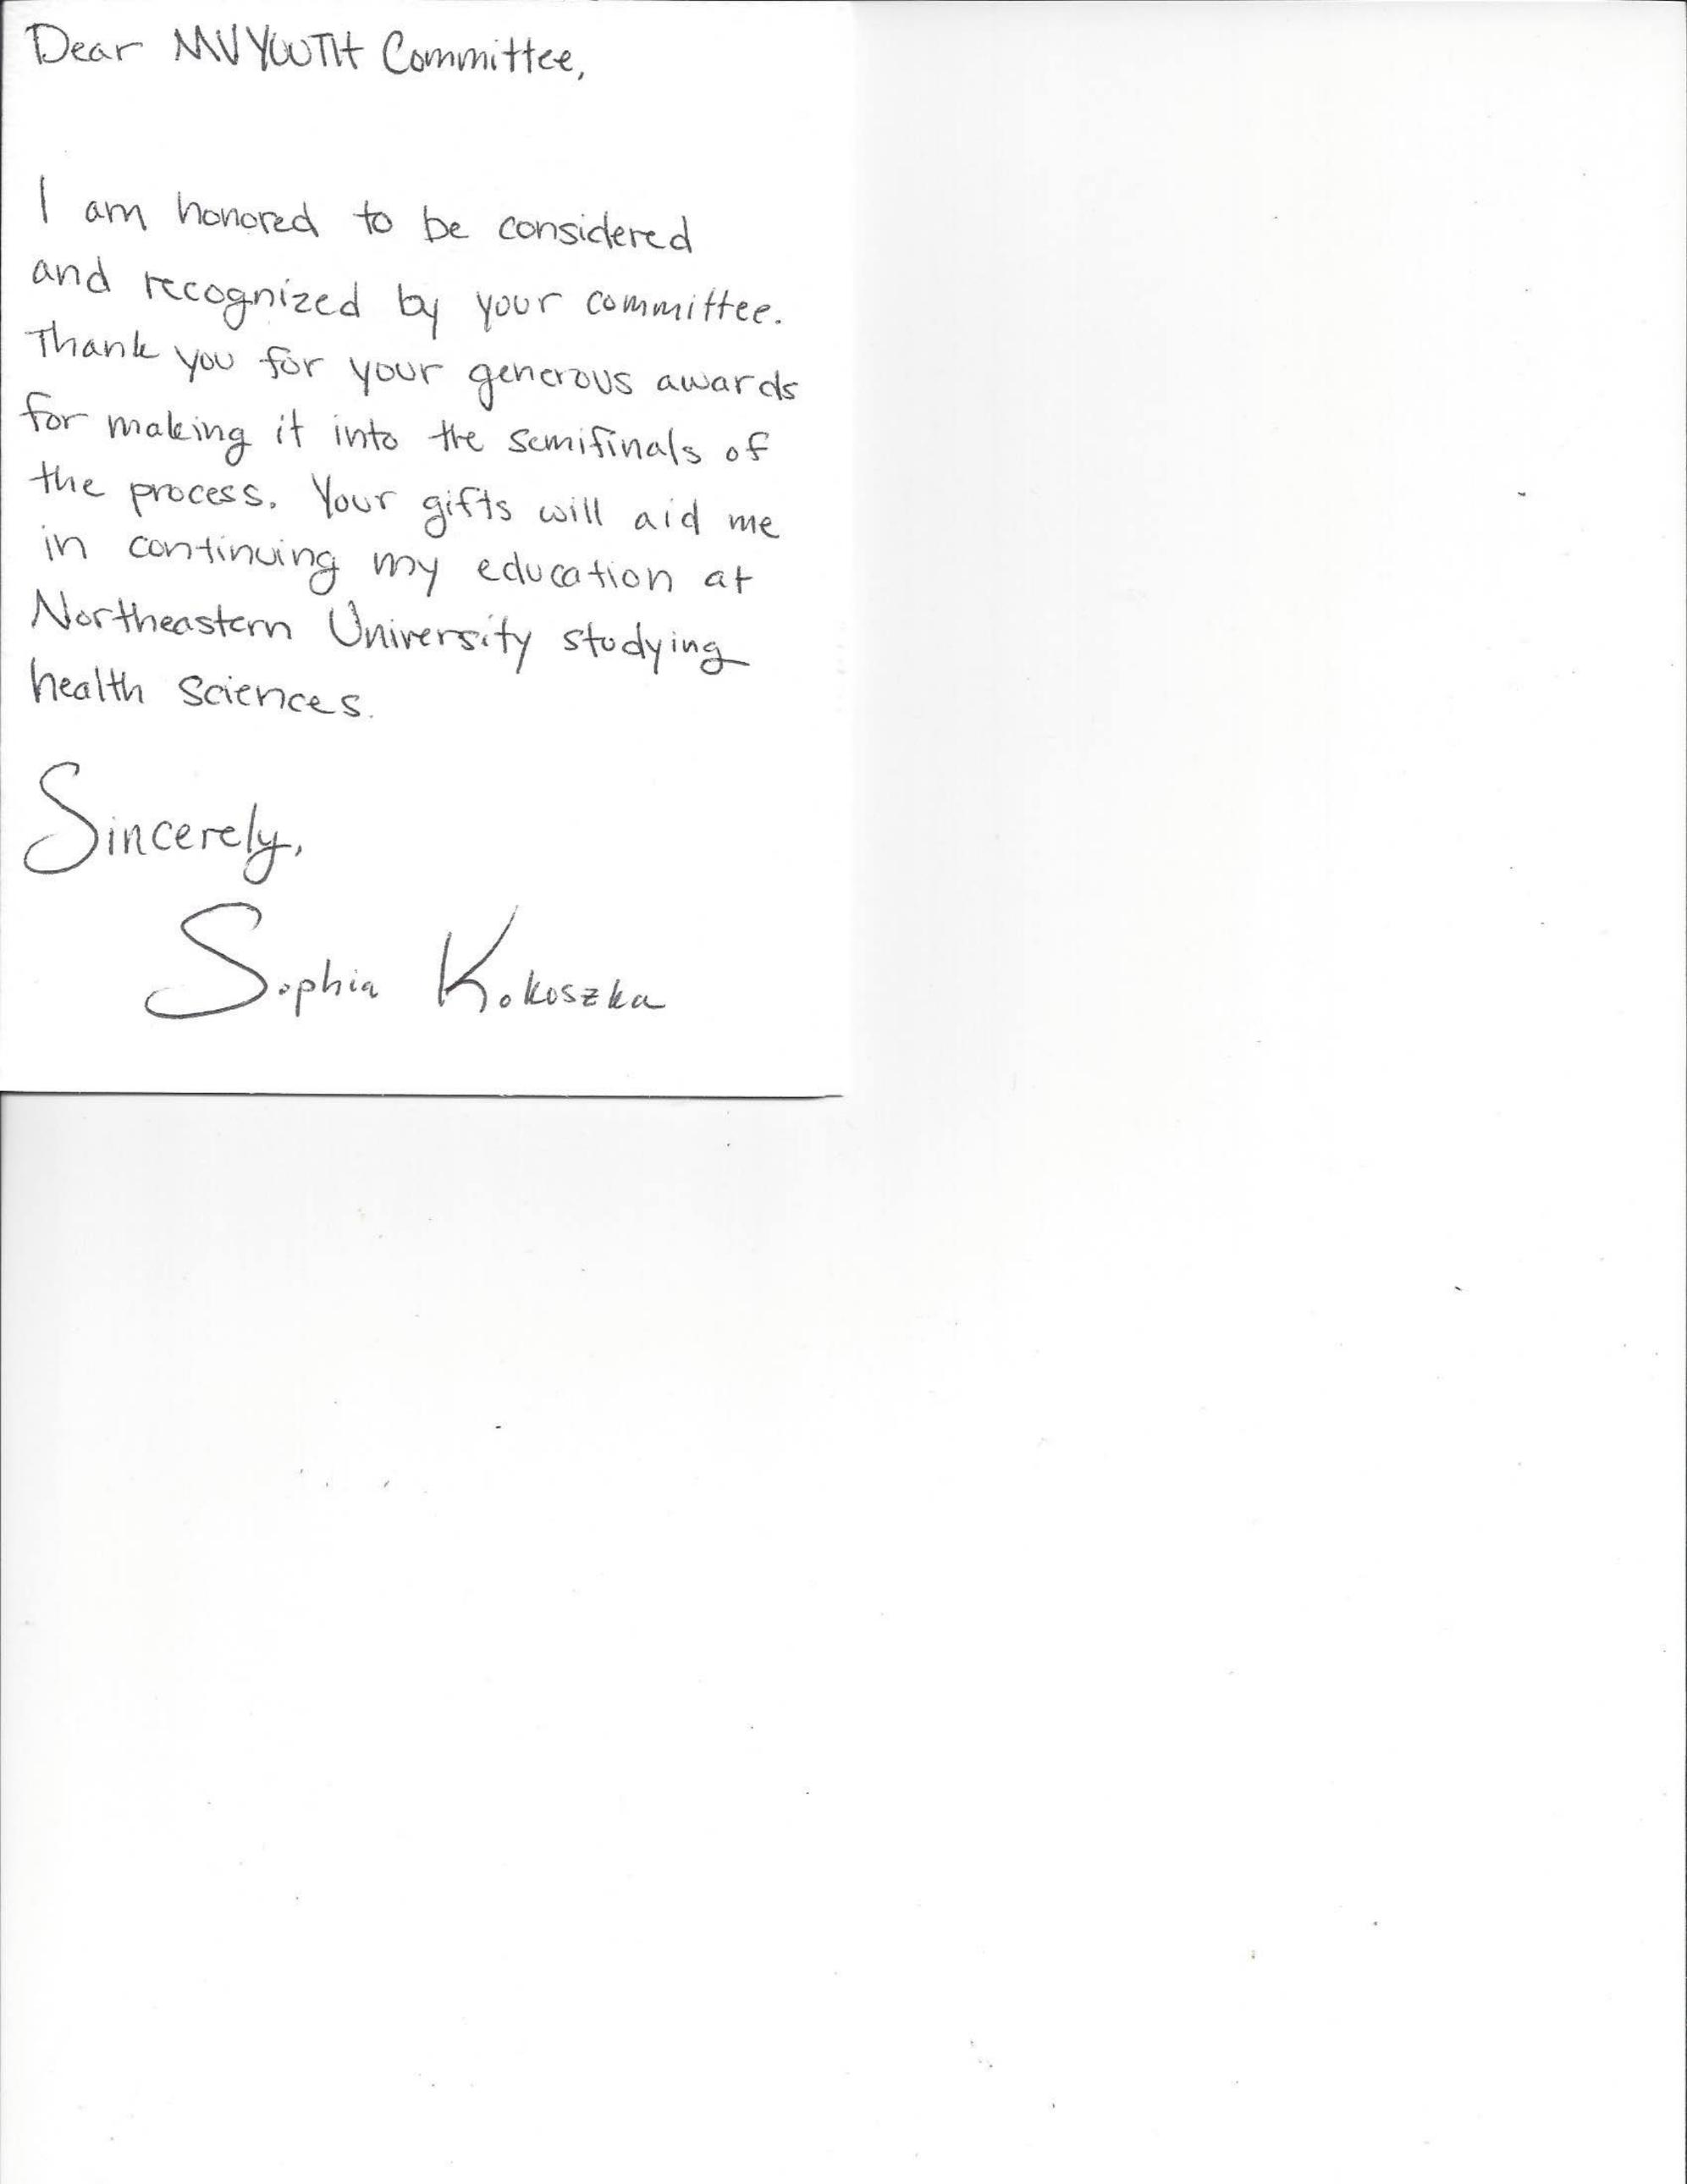 Dear MVYOUTH Committee,
I am honored to be considered
and recognized by your committee.
Thank you for your generous awards
for making it into the semifinals of
the process. Your gifts will aid me
in continuing my education at
Northeastern University studying
health sciences.
Sincerely,
Sophia Kokoszka